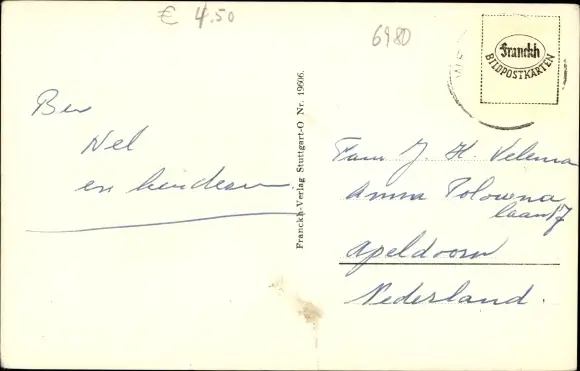 € 4.50
6980
Franckh
BILDPOSTKARTEN
Ber
Nel
en kinderen.
Franckh-Verlag Stuttgart-O Nr. 19606.
Fam J. H. Velema
Anna Polowna
laan 7
Apeldoorn
Nederland.